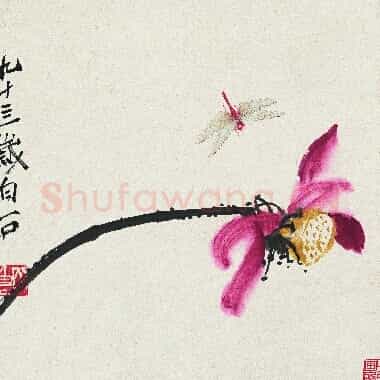 九十三歲白石
Shufawang